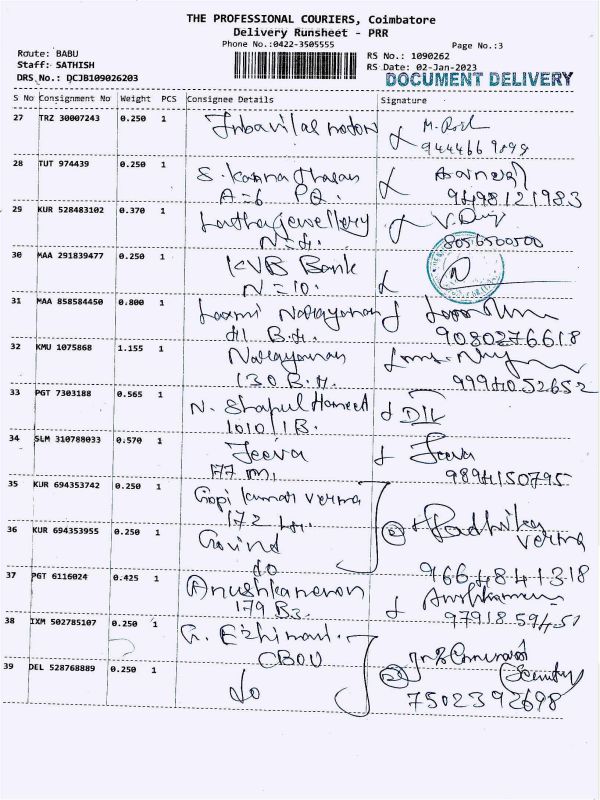 THE PROFESSIONAL COURIERS, Coimbatore
Delivery Runsheet - PRR
Phone No.:0422-3505555
Page No.:3
Route: BABU
Staff: SATHISH
DRS No.: DCJB109026203
RS No.: 1090262
RS Date: 02-Jan-2023
DOCUMENT DELIVERY
S No Consignment No Weight PCS Consignee Details Signature
27 TRZ 30007243 0.250 1
28 TUT 974439 0.250 1 S. Kannathasan
A=6 PQ. 9498121983
29 KUR 528483102 0.370 1 Latha Jewellery
N=4. 8056500500
30 MAA 291839477 0.250 1 KVB Bank
N=10.
31 MAA 858584450 0.800 1 Laxmi Narayanan
41 B.H. 9080276618
32 KMU 1075868 1.155 1 Narayanan
130 B.H. 9994052652
33 PGT 7303188 0.565 1 N. Shahul Hameed
1010/1B.
34 SLM 310788033 0.570 1 Jeeva Jeeva
177 m. 9894150795
35 KUR 694353742 0.250 1 Gopi Kumar Verma
172
36 KUR 694353955 0.250 1 Govind Radhika Verma
do 9664841318
37 PGT 6116024 0.425 1 Anushkamenon
179 B3. 9791859451
38 IXM 502785107 0.250 1 G. Ezhimani.
CBOU
39 DEL 528768889 0.250 1 do (Security)
7502392698